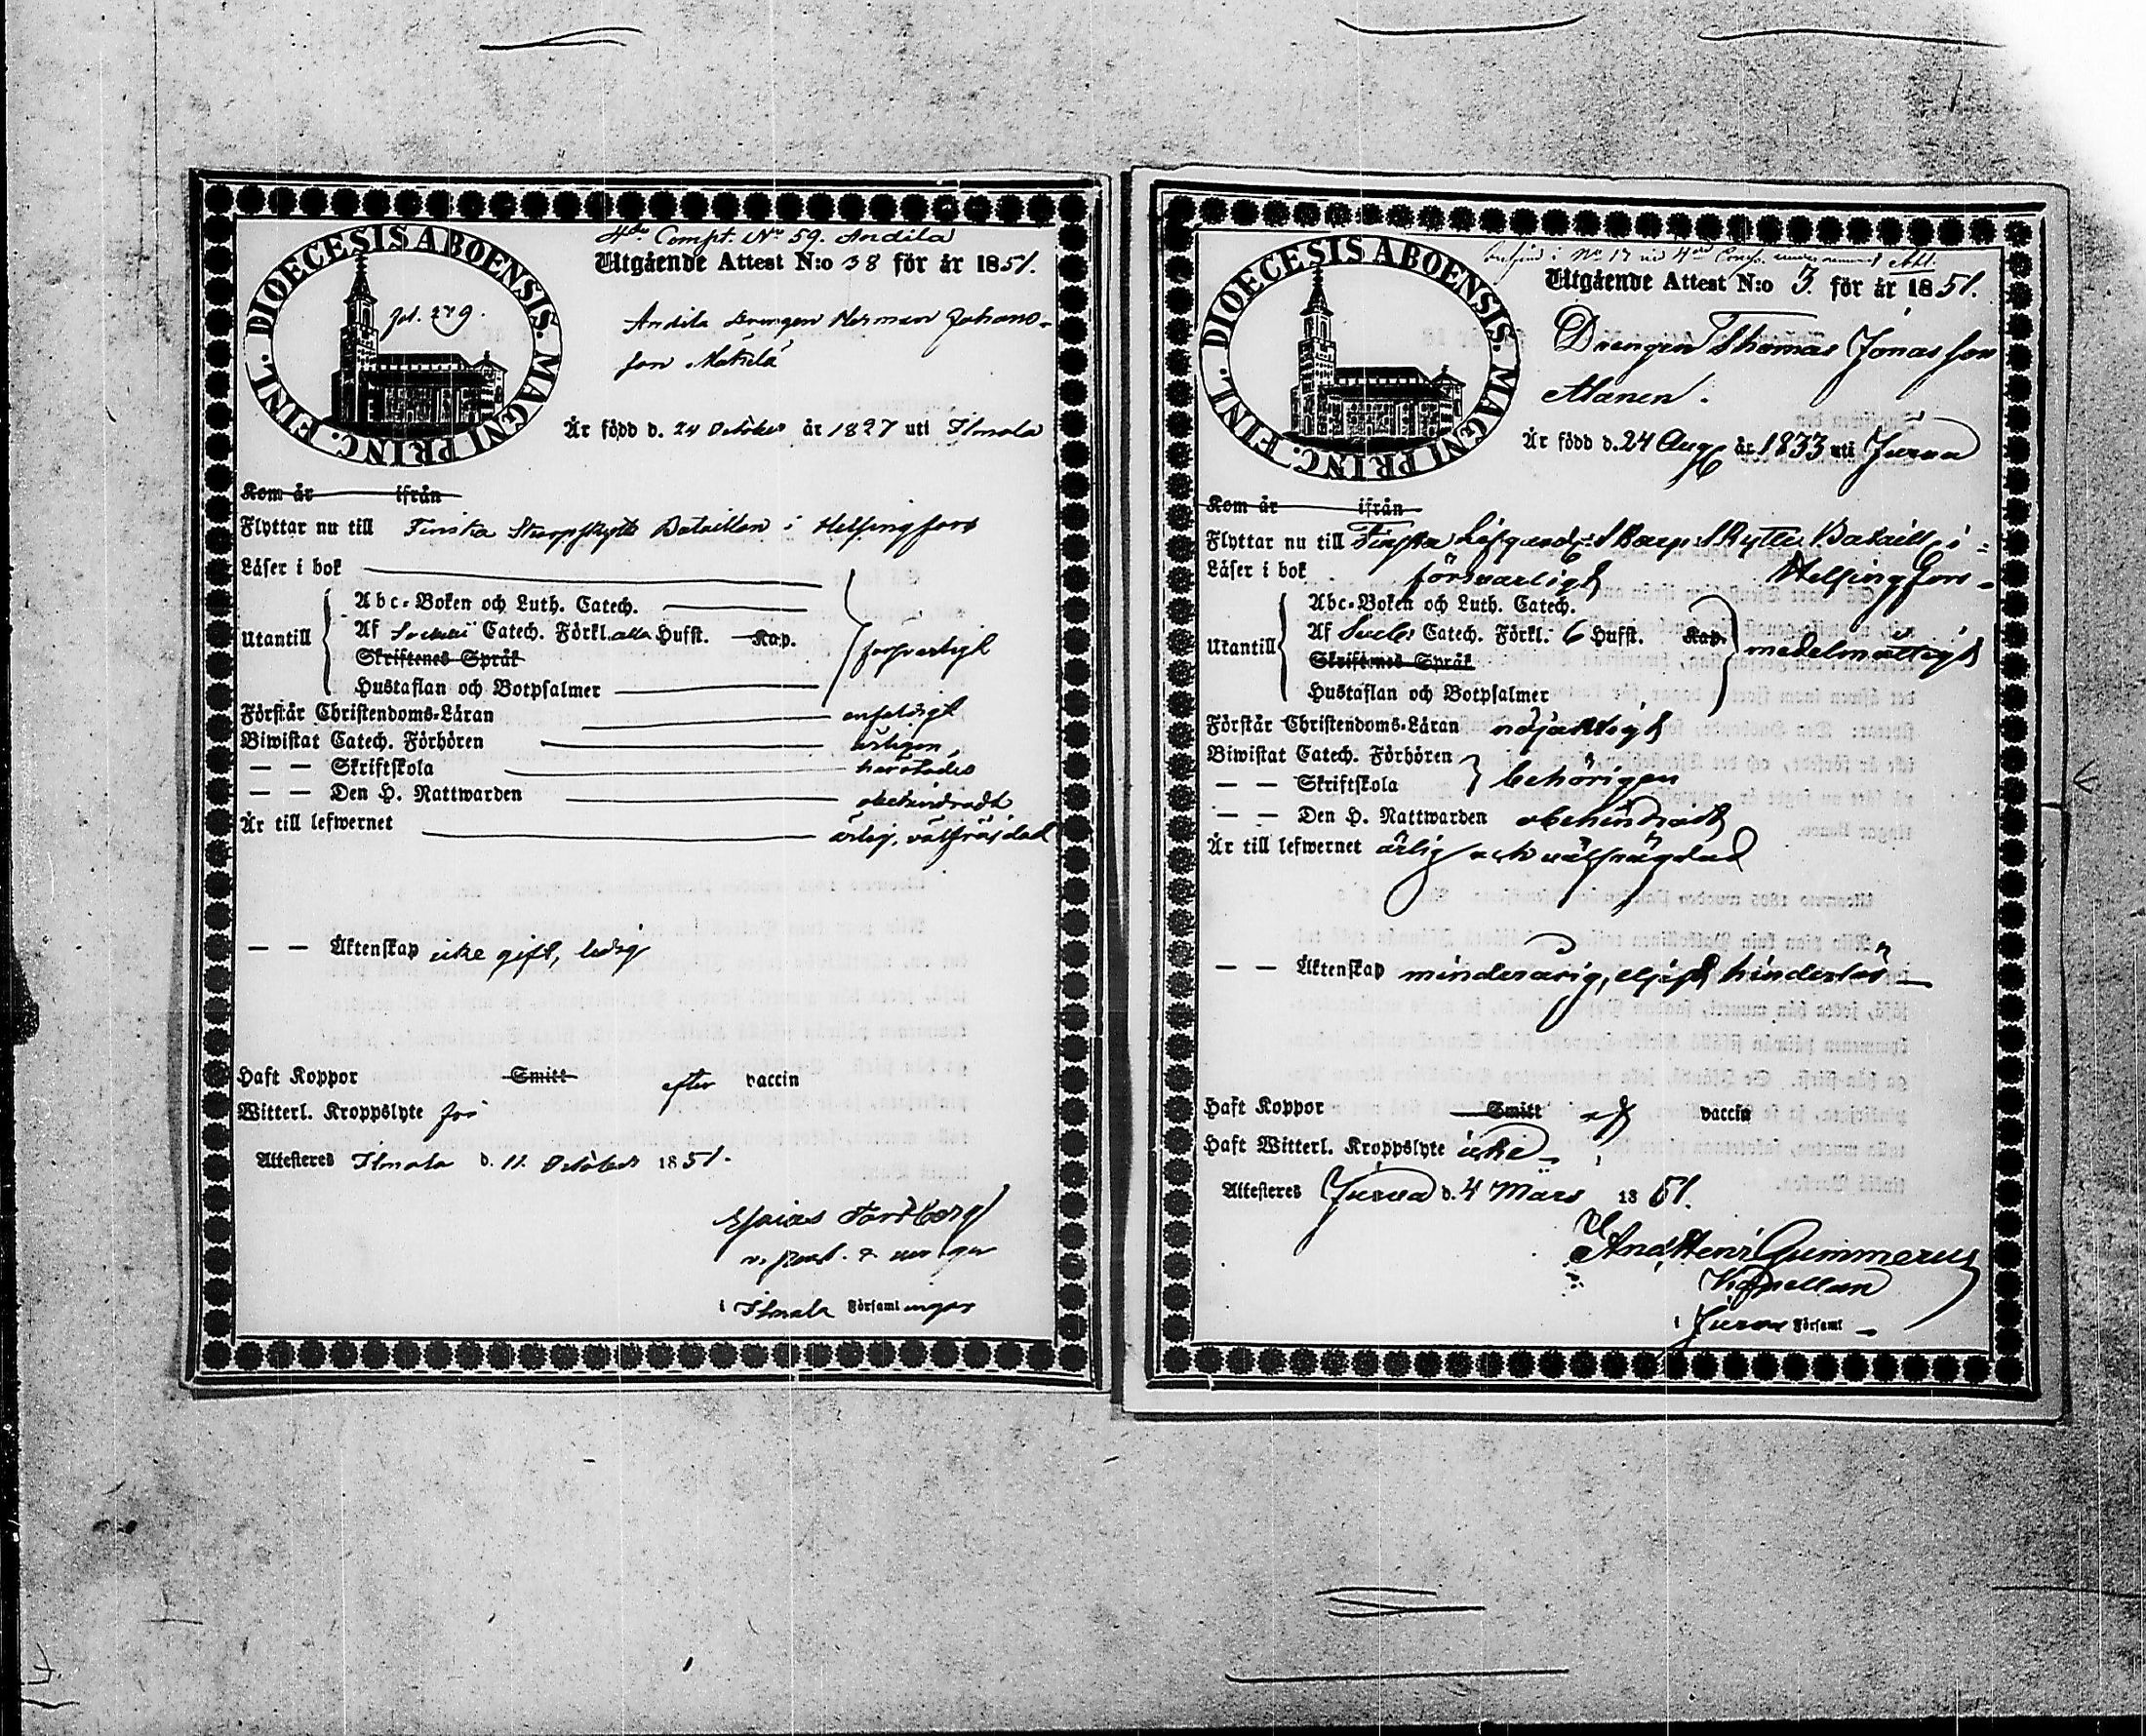 4de Compt. No 59. Andila
DIOECESIS ABOENSIS. MAGNI PRINC. FINL.
Utgående Attest N:o 38 för år 1851.
fol. 229.
Andila Drengen Herman Johans-
son Mäkelä
Är född d. 24 October år 1827 uti Ilmola
Kom år ifrån
Flyttar nu till Finska Skarpskytte Bataillon i Helsingfors
Läser i bok
Utantill
Abc-Boken och Luth. Catech.
Af Catech. Förkl. alla Hufst. Kap.
Skriftenes Språk
försvarligt
Hustaflan och Botpsalmer
Förstår Christendoms-Läran enfaldigt
Biwistat Catech. Förhören årligen
— — Skriftskola härstädes
— — Den H. Nattwarden obehindradt
Är till lefwernet ärlig, välfräjdad
— — Äktenskap icke gift, ledig
Haft Koppor Smitt efter vaccin
Witterl. Kroppslyte fri
Attesteres Ilmola d. 11 October 1851.
Esaias
v. past.
i Ilmola Församlingar
DIOECESIS ABOENSIS. MAGNI PRINC. FINL.
i No 17 vid 4de Comp.
Utgående Attest N:o 3. för år 1851.
Drengen Thomas Jonasson
Alanen.
Är född d. 24 Aug år 1833 uti Jurva
Kom år ifrån
Flyttar nu till Finska Lifgardes Skarp-Skytte Bataill. i
Helsingfors
Läser i bok försvarligt
Utantill
Abc-Boken och Luth. Catech.
Af Catech. Förkl. 6 Hufst. Kap.
medelmåttigt
Skriftenes Språk
Hustaflan och Botpsalmer
Förstår Christendoms-Läran nöjaktigt
Biwistat Catech. Förhören
behörigen
— — Skriftskola
— — Den H. Nattwarden obehindradt
Är till lefwernet ärlig och välfrägdad
— — Äktenskap minderårig, eljest hinderlös
Haft Koppor Smitt af vaccin
Haft Witterl. Kroppslyte icke
Attesteres Jurva d. 4 Mars 1851.
And. Henr. Gummerus
Kapellan
i Jurva Församl